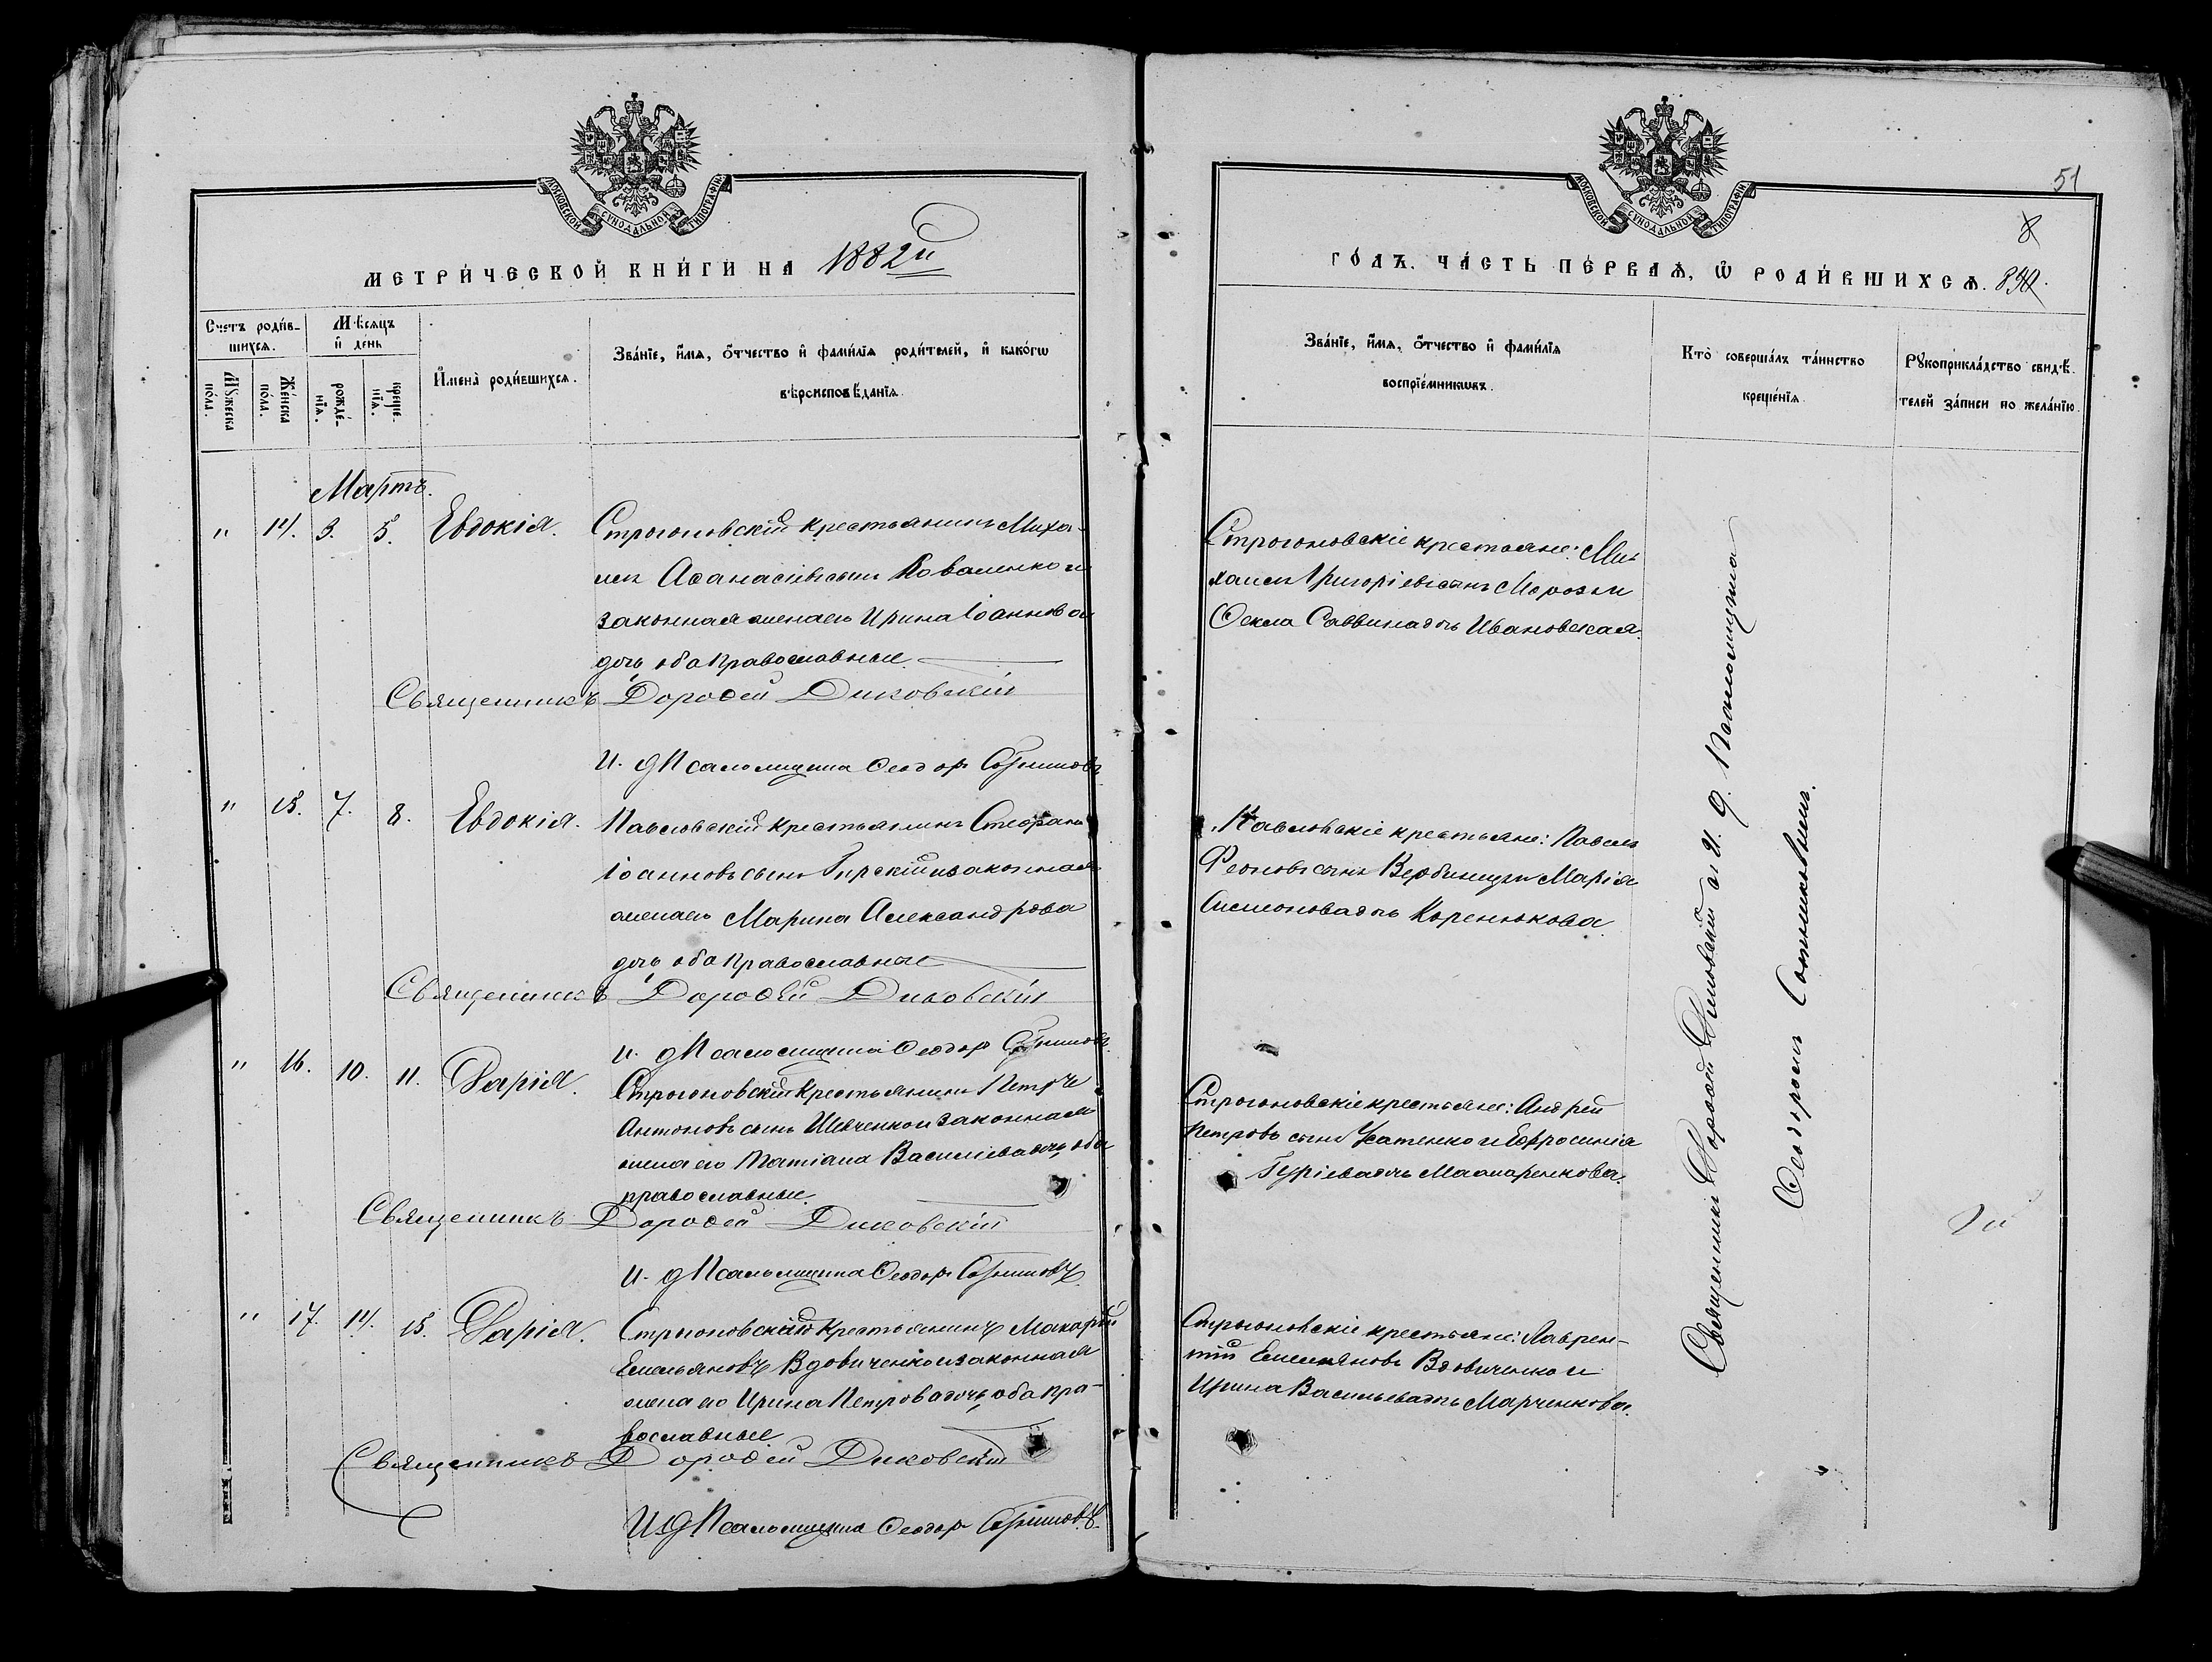 МОСКОВСКОЙ СѴНОДАЛЬНОЙ ТИПОГРАФІИ
МЕТРИ́ЧЕСКОЙ КНИ́ГИ НА 1882й
Счетъ роди́в-
шихсѧ.
Мѣ́сѧцъ
и҆ день
Мꙋ́жеска
по́ла.
Же́нска
по́ла.
рожде́-
нїѧ.
креще́-
нїѧ.
И҆мена̀ роди́вшихсѧ.
Зва́нїе, и҆́мѧ, ѻ҆́тчество и҆ фами́лїѧ роди́телей, и҆ како́гѡ
вѣроисповѣ́данїѧ.
Мартъ.
" 14. 3. 5. Евдокія. Строгоновскій крестьянинъ Миха-
илъ Аѳанасіевъ сынъ Коваленко и
законная жена его Ирина Іоаннова
дочь оба православные.
Священникъ Дороѳей Диковскій
И. д Псаломщика Ѳеодоръ Сотниковъ
" 15. 7. 8. Евдокія. Павловскій крестьянинъ Стефанъ
Іоанновъ сынъ и законная
жена его Марина Александрова
дочь оба православные
Священникъ Дороѳей Диковскій
и. д Псаломщика Ѳеодоръ Сотниковъ.
" 16. 10. 11. Дарія. Строгоновскій крестьянинъ Петръ
Антоновъ сынъ Шевченко и законная
жена его Татіана Василіева дочь, оба
православные.
Священникъ Дороѳей Диковскій
И. д Псаломщика Ѳеодоръ Сотниковъ.
" 17. 14. 15. Дарія. Строгоновскій крестьянинъ Макарій
Емельяновъ Вдовиченко и законная
жена его Ирина Петрова дочь, оба пра-
вославные
Священникъ Дороѳей Диковскій
И. д Псаломщика Ѳеодоръ Сотниковъ.
51
8
МОСКОВСКОЙ СѴНОДАЛЬНОЙ ТИПОГРАФІИ
ГО́ДЪ. ЧА́СТЬ ПЕ́РВАѦ, Ѽ РОДИ́ВШИХСѦ.
Зва́нїе, и҆́мѧ, ѻ҆́тчество и҆ фами́лїѧ
воспрїе́мникѡвъ.
Кто̀ соверша́лъ та́инство
креще́нїѧ.
Рꙋкоприкла́дство свидѣ́-
телей за́писи по жела́нїю.
Строгоновскіе крестьяне: Ми-
хаилъ Григоріевъ сынъ Морозъ и
Ѳекла Саввина дочь Ивановская.
Павловскіе крестьяне: Павелъ
сынъ и Марія
Симеонова дочь Коренюкова.
Строгоновскіе крестьяне: Андрей
Петровъ сынъ Усатенко и Ефросинія
Гуріева дочь
Строгоновскіе крестьяне: Лаврен-
тій Емельяновъ Вдовиченко и
Ирина Васильева дочь Марченкова.
Священникъ Дороѳей Диковскій съ И. д. Псаломщика
Ѳеодоромъ Сотниковымъ.